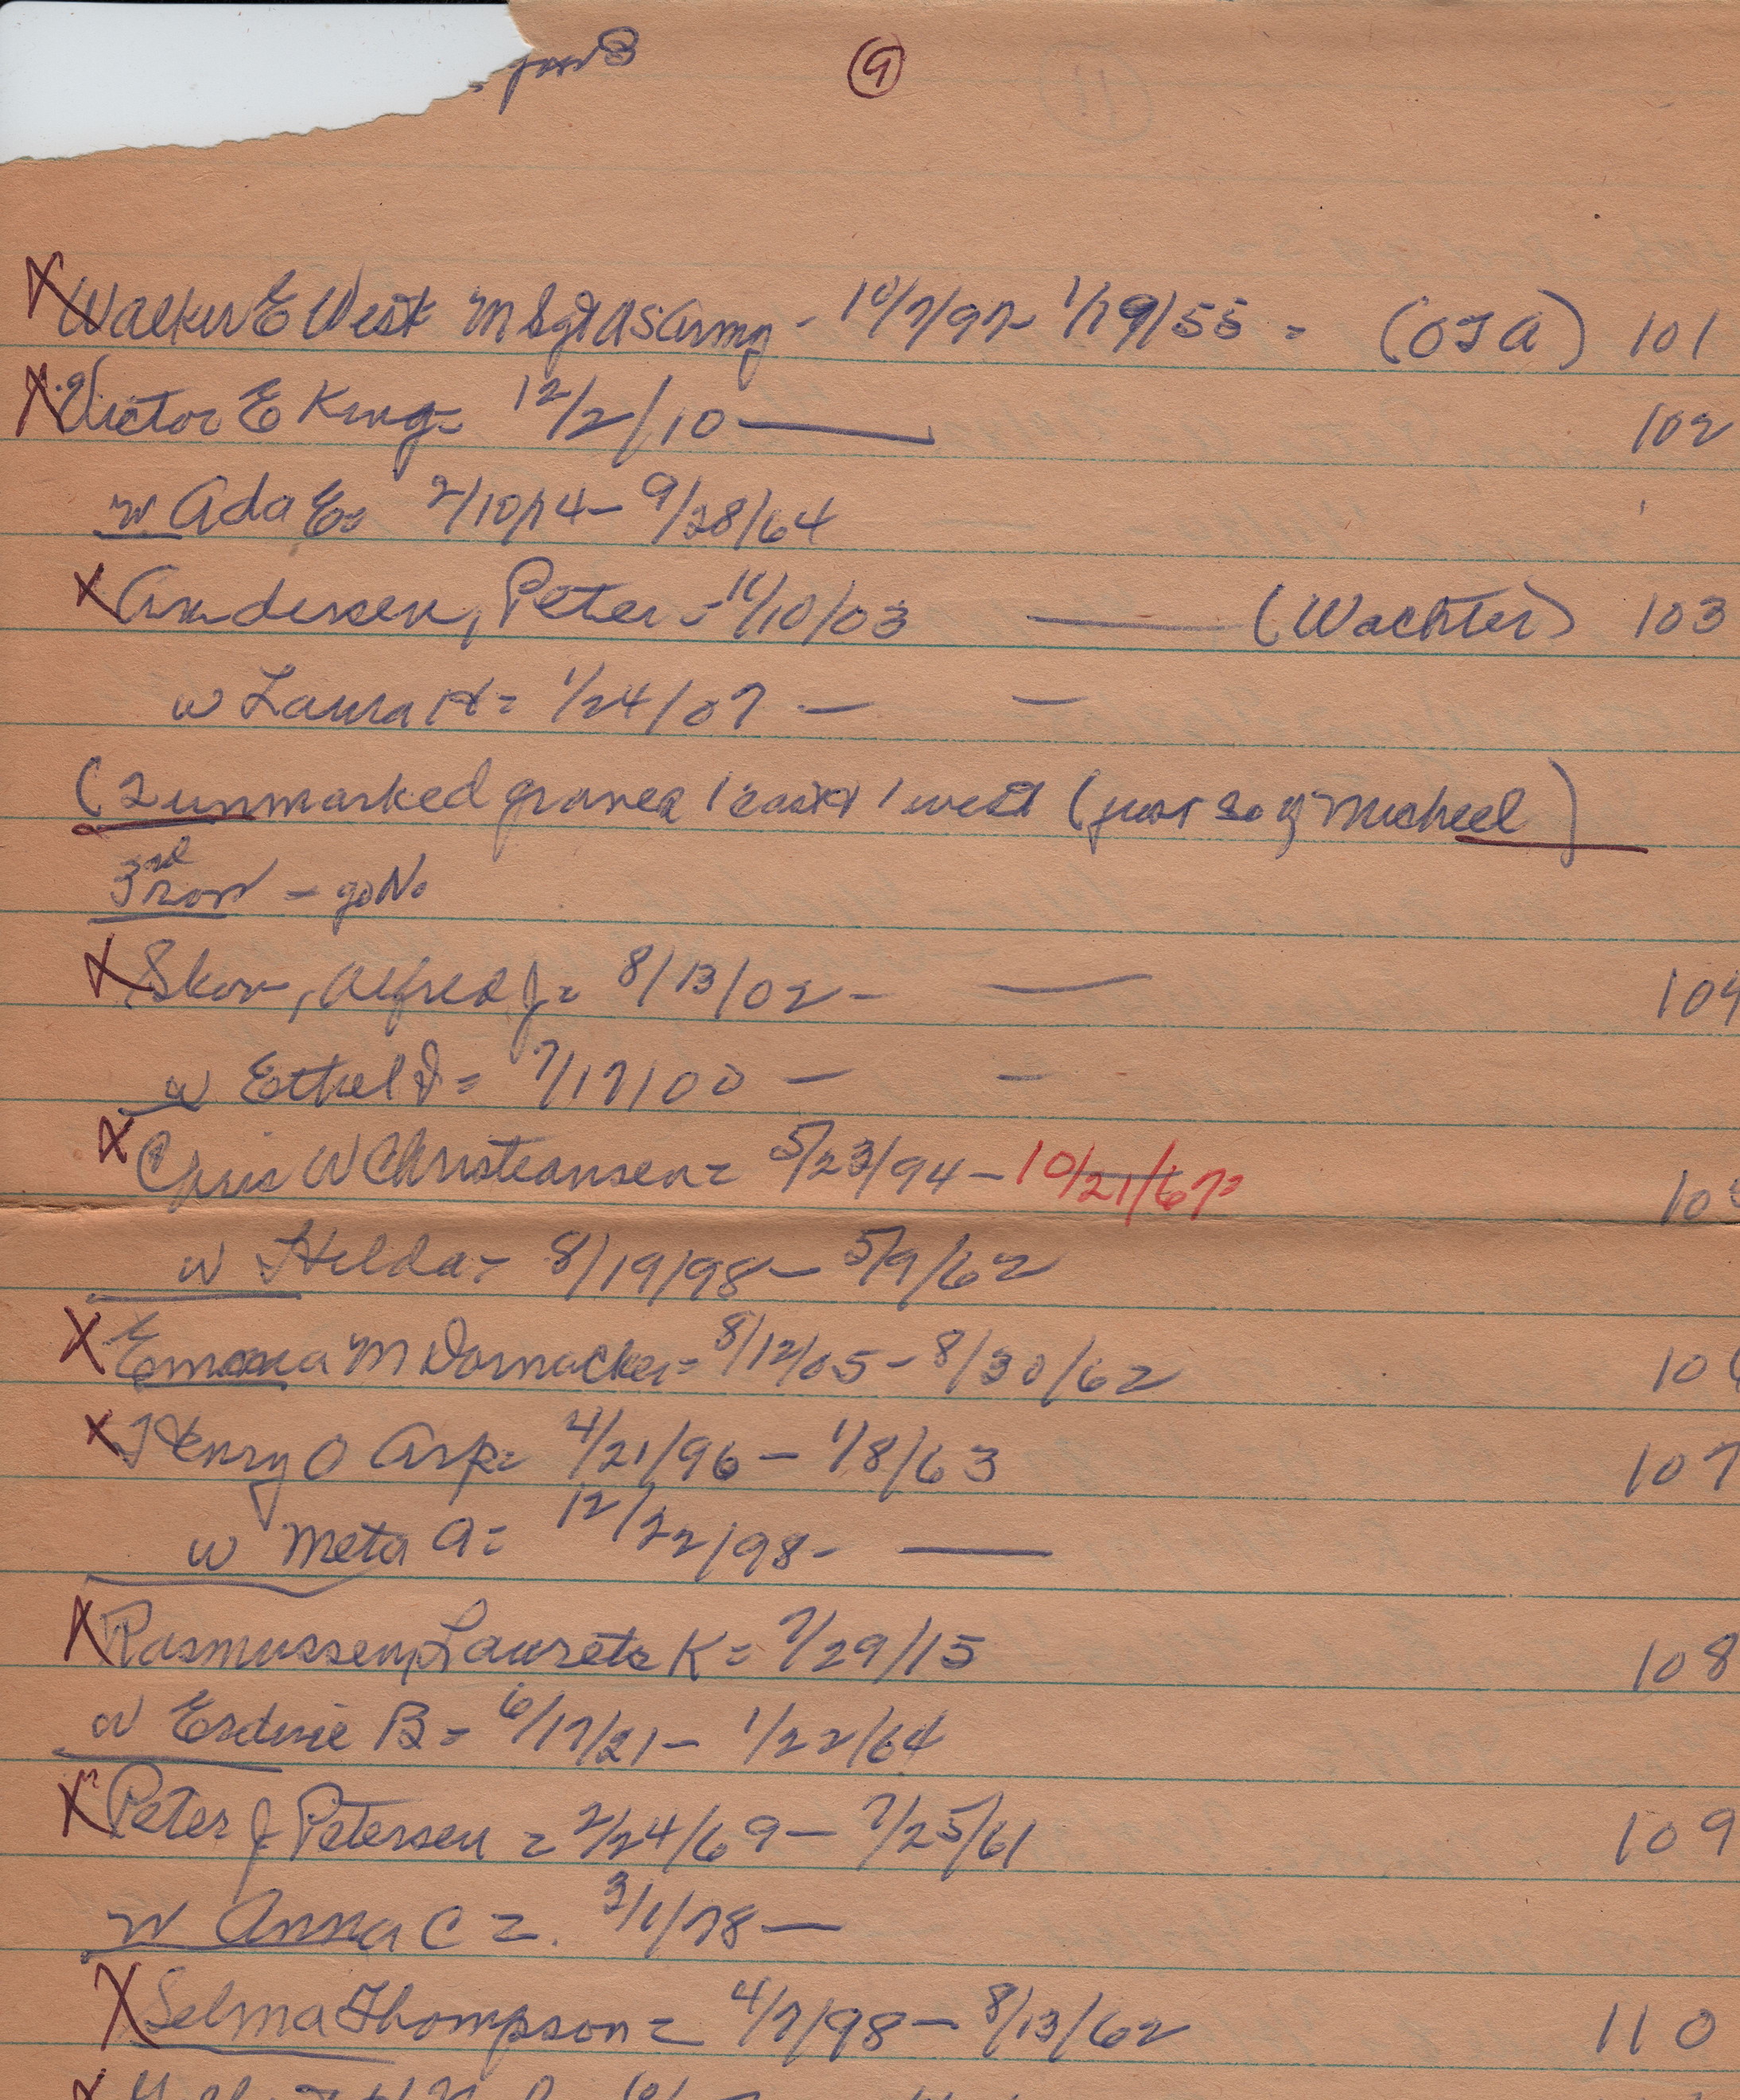 9
X Walker E West M Sgt US Army - 10/7/97- 1/19/55 = (OJA) 101
X Victor E King = 12/2/10 — 102
w Ada E = 2/10/14 - 9/28/64
X Andersen, Peter - 11/10/03 — (Wachter) 103
w Laura H = 1/24/07 — —
(2 unmarked graves 1 east 1 west (just So of Micheel)
3rd row - go No
X Skov, Alfred J = 8/13/02 - — 104
w Ethel D = 7/17/00 — —
X Chris W Christiansen = 5/23/94 - 10/21/67 = 10
w Hilda = 8/19/98 - 5/9/62
X Emma M Dornacker = 8/12/05 - 8/30/62 10
X Henry O Arp = 4/21/96 - 1/8/63 107
w Meta A = 12/22/98 - —
X Rasmussen, Laurets K = 7/29/15 108
w Erdine B = 6/17/21 - 1/22/64
X Peter J Petersen = 2/24/69 - 7/25/61 109
w Anna C = 3/1/78 —
X Selma Thompson = 4/7/98 - 8/13/62 110